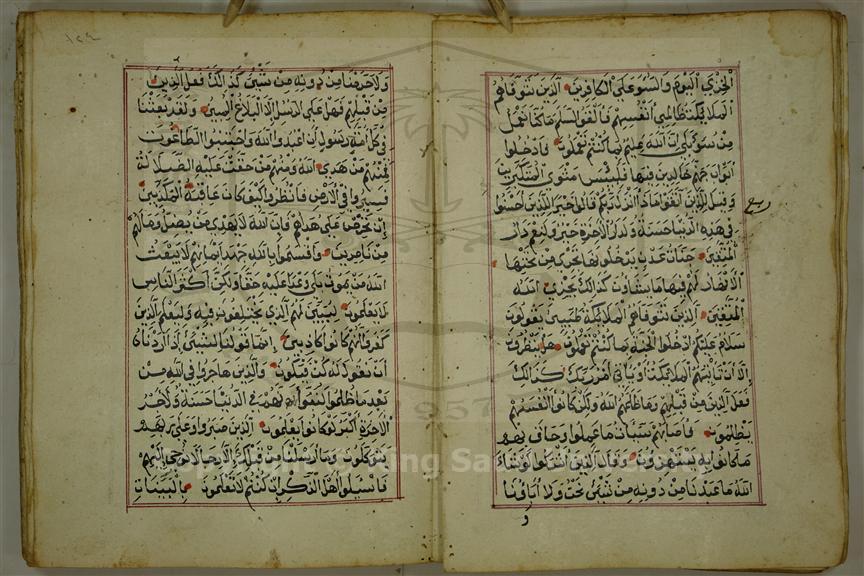 الخزي اليوم والسوء على الكافرين الذين تتوفاهم
الملائكة ظالمي أنفسهم فألقوا السلم ما كنا نعمل
من سوء بلى إن الله عليم بما كنتم تعملون فادخلوا
أبواب جهنم خالدين فيها فلبئس مثوى المتكبرين
وقيل للذين اتقوا ماذا أنزل ربكم قالوا خيرا للذين أحسنوا
في هذه الدنيا حسنة ولدار الآخرة خير ولنعم دار
المتقين جنات عدن يدخلونها تجري من تحتها
الأنهار لهم فيها ما يشاؤن كذلك يجزي الله
المتقين الذين تتوفاهم الملائكة طيبين يقولون
سلام عليكم ادخلوا الجنة بما كنتم تعملون هل ينظرون
إلا أن تأتيهم الملائكة أو يأتي أمر ربك كذلك
فعل الذين من قبلهم وما ظلمهم الله ولكن كانوا أنفسهم
يظلمون فأصابهم سيئات ما عملوا وحاق بهم
ما كانوا به يستهزؤن وقال الذين أشركوا لو شاء
الله ما عبدنا من دونه من شيء نحن ولا آباؤنا
و
ربع
١٢٤
ولا حرمنا من دونه من شيء كذلك فعل الذين
من قبلهم فهل على الرسل إلا البلاغ المبين ولقد بعثنا
في كل أمة رسولا أن اعبدوا الله واجتنبوا الطاغوت
فمنهم من هدى الله ومنهم من حقت عليه الضلالة
فسيروا في الأرض فانظروا كيف كان عاقبة المكذبين
إن تحرص على هداهم فإن الله لا يهدي من يضل وما لهم
من ناصرين وأقسموا بالله جهد أيمانهم لا يبعث
الله من يموت بلى وعدا عليه حقا ولكن أكثر الناس
لا يعلمون ليبين لهم الذي يختلفون فيه وليعلم الذين
كفروا أنهم كانوا كاذبين إنما قولنا لشيء إذا أردناه
أن نقول له كن فيكون والذين هاجروا في الله من
بعد ما ظلموا لنبوأنهم في الدنيا حسنة ولأجر
الآخرة أكبر لو كانوا يعلمون الذين صبروا وعلى ربهم
يتوكلون وما أرسلنا من قبلك إلا رجالا نوحي إليهم
فاسئلوا أهل الذكر إن كنتم لا تعلمون بالبينات
1957
Copyright © King Saud University